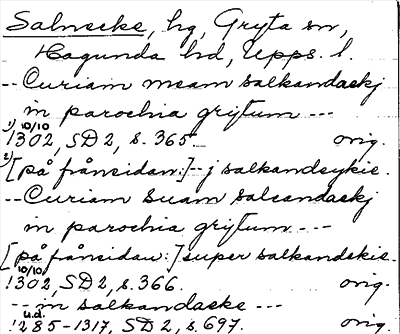 Salnecke, hg, Gryta sn,
Hagunda hd, Upps. l.
-- Curiam meam salkandaekj
in parochia grijtum ---
1) 10/10 1302, SD 2, s. 365. orig.
2) [på frånsidan:] -- j salkandeykie.
-- Curiam suam salcandaekj
in parochia grijtum. ---
[på frånsidan:] super salkandekie.
10/10 1302, SD 2, s. 366. orig.
--- in salkandaeke ---
u.d. 1285-1317, SD 2, s. 697. orig.